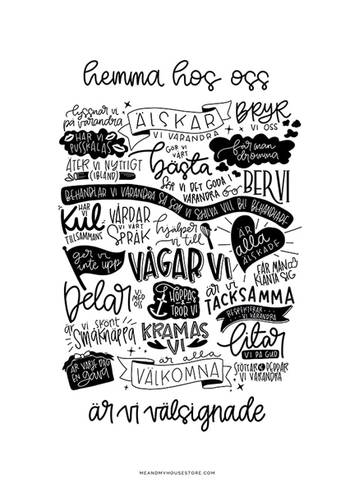 hemma hos oss
lyssnar vi
på varandra
ÄLSKAR
VI VARANDRA
BRYR
VI OSS
HAR VI
PUSSKALAS
GÖR VI
VÅRT
bästa
får man
drömma
ÄTER VI NYTTIGT
(IBLAND)
SER VI DET GODA I
VARANDRA
BER VI
BEHANDLAR VI VARANDRA SÅ SOM VI SJÄLVA VILL BLI BEHANDLADE
HAR VI
kul
TILLSAMMANS
VÅRDAR
VI VÅRT
SPRÅK
hjälper
vi till
ÄR
alla
ÄLSKADE
ger vi
inte upp
VÅGAR VI
FÅR MAN
KLANTA SIG
Delar
VI MED
OSS
HOPPAS
&
TROR VI
är vi
TACKSAMMA
RESPEKTERAR
VI VARANDRA
är skönt
SMÅKNÄPPA
vi
KRAMAS
VI
litar
VI PÅ GUD
ÄR VARJE DAG
EN
gåva
är alla
VÄLKOMNA
STÖTTAR & PEPPAR
VI VARANDRA
är vi välsignade
MEANDMYHOUSESTORE.COM